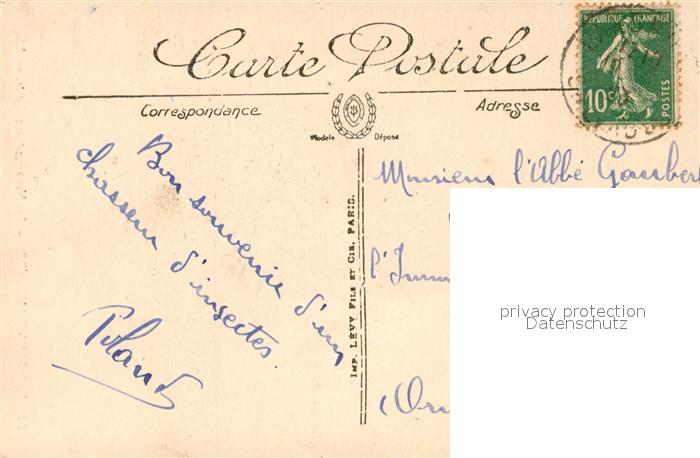 Carte Postale
RÉPUBLIQUE FRANÇAISE
10c
POSTES
Correspondance
Adresse
Modèle Déposé
Bon souvenir d'un
chasseur d'insectes.
Monsieur l'Abbé Gaubert
IMP. LÉVY FILS ET CIE, PARIS.
privacy protection
Datenschutz